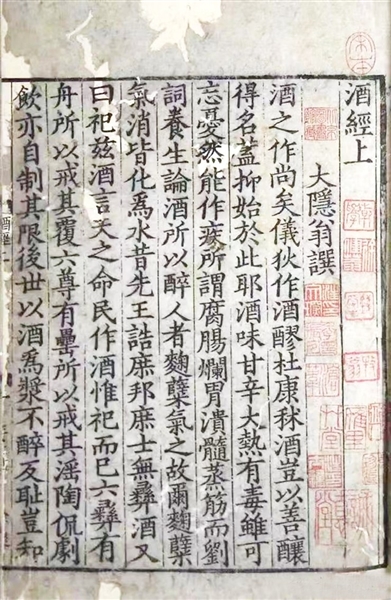 酒經上
大隱翁譔
酒之作尚矣儀狄作酒醪杜康秫酒豈以善釀
得名蓋抑始於此耶酒味甘辛大熱有毒雖可
忘憂然能作疾所謂腐腸爛胃潰髓蒸筋而劉
詞養生論酒所以醉人者麴糵氣之故爾麴糵
氣消皆化為水昔先王誥庶邦庶士無彝酒又
曰祀茲酒言天之命民作酒惟祀而已六彝有
舟所以戒其覆六尊有罍所以戒其淫陶侃劇
飲亦自制其限後世以酒為漿不醉反恥豈知